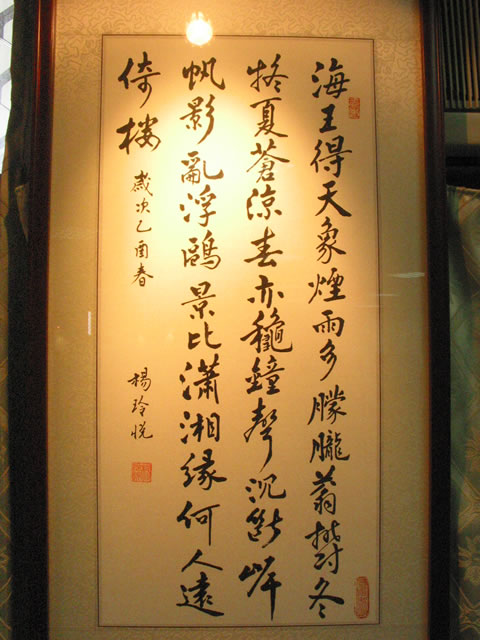 海王得天象煙雨多朦朧蓊欝冬
夏蒼涼春亦龝鐘聲沉斷岸
帆影亂浮鷗景比瀟湘緣何人遠
倚樓 歲次乙酉春
楊玲悅